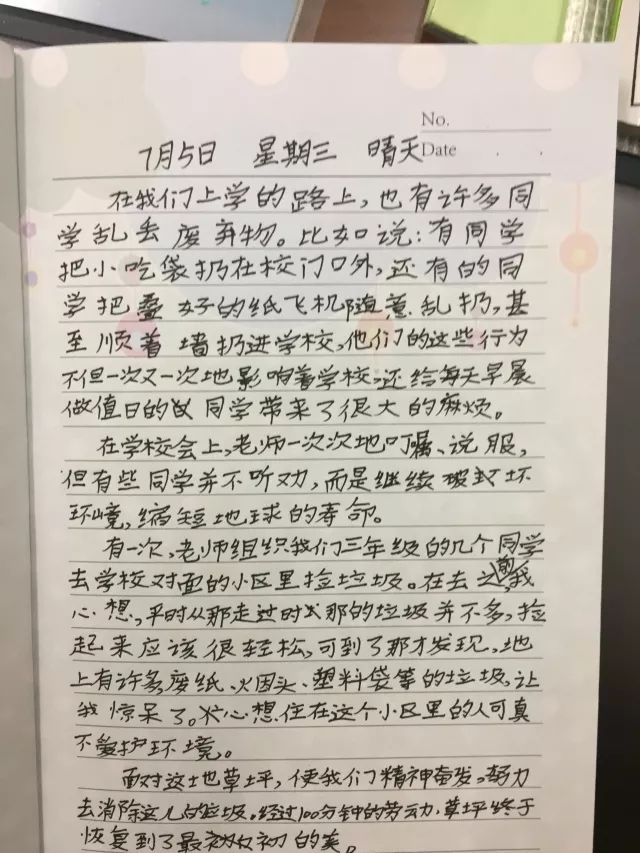 No.
Date
7月5日 星期三 晴天
在我们上学的路上,也有许多同
学乱丢废弃物。比如说:有同学
把小吃袋扔在校门口外,还有的同
学把叠好的纸飞机随意乱扔,甚
至顺着墙扔进学校,他们的这些行为
不但一次又一次地影响着学校,还给每天早晨
做值日的 同学带来了很大的麻烦。
在学校会上,老师一次次地叮嘱、说服,
但有些同学并不听劝,而是继续破坏
环境,缩短地球的寿命。
有一次,老师组织我们三年级的几个同学
去学校对面的小区里捡垃圾。在去之前,我
心想,平时从那走过时 那的垃圾并不多,捡
起来应该很轻松,可到了那才发现,地
上有许多废纸、烟头、塑料袋等的垃圾,让
我惊呆了。心想住在这个小区里的人可真
不爱护环境。
面对这地草坪,使我们精神奋发,努力
去消除这儿的垃圾。经过100分钟的劳动,草坪终于
恢复到了最初 的美。